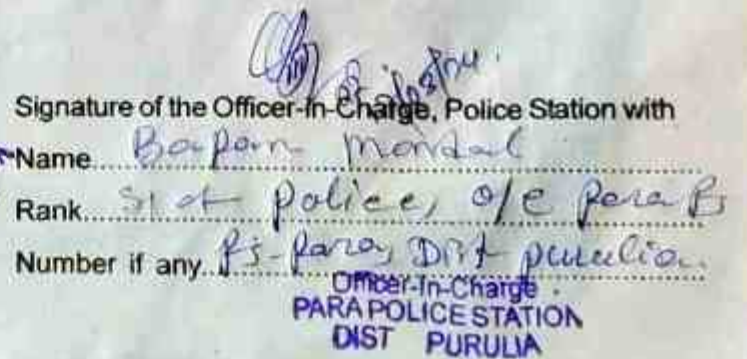 Signature of the Officer-In-Charge, Police Station with
Name Bapan Mondal
Rank SI of Police, O/C Para PS
Number if any PS-Para, Dist Purulia.
Officer-In-Charge
PARA POLICE STATION
DIST PURULIA